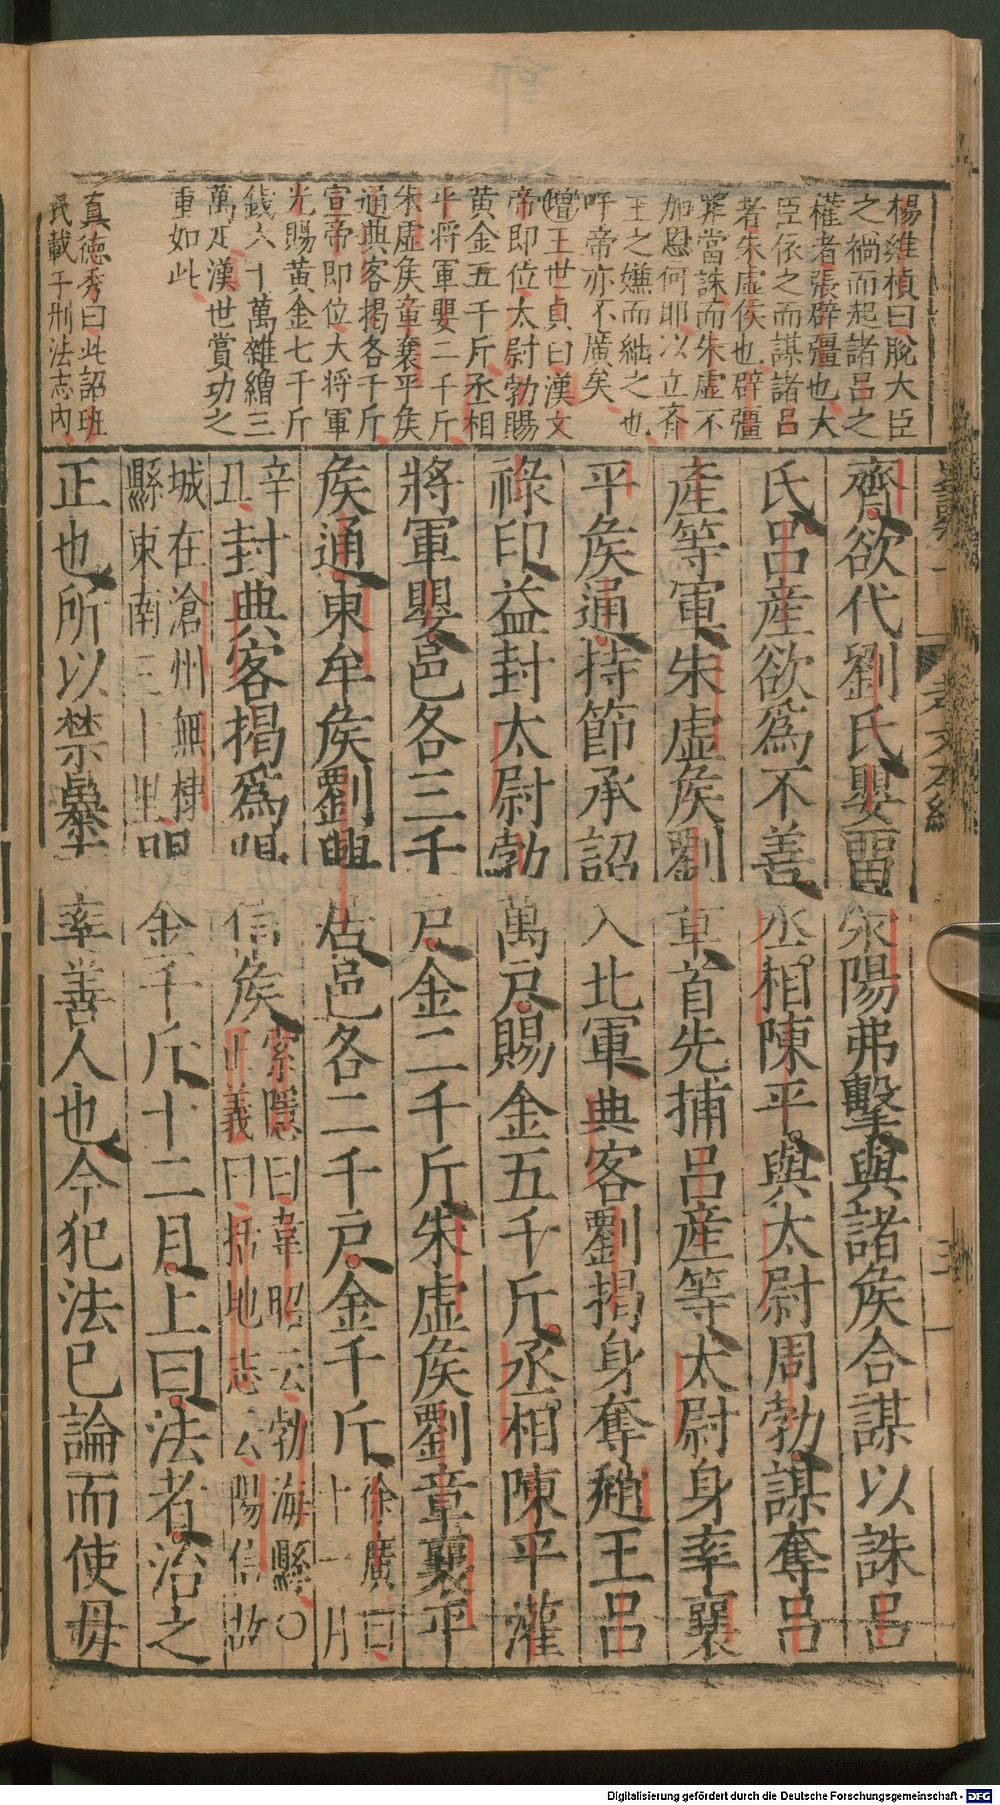 楊維楨曰脫大臣
之禍而起諸呂之
權者張辟彊也大
臣依之而謀諸呂
者朱虛侯也辟彊
罪當誅而朱虛不
加慰何耶以立齊
王之嫌而絀之也
呼帝亦不廣矣
增王世貞曰漢文
帝即位太尉勃賜
黃金五千斤丞相
平將軍嬰二千斤
朱虛矦章襄平矦
通典客揭各千斤
宣帝即位大將軍
光賜黃金七千斤
錢六十萬雜繒三
萬疋漢世賞功之
重如此
真德秀曰此詔班
氏載于刑法志內
齊欲代劉氏嬰畱滎陽弗擊與諸矦合謀以誅呂
氏呂産欲爲不善丞相陳平與太尉周勃謀奪呂
産等軍朱虛矦劉章首先捕呂産等太尉身率襄
平矦通持節承詔入北軍典客劉揭身奪趙王呂
祿印益封太尉勃萬戶賜金五千斤丞相陳平灌
將軍嬰邑各三千戶金二千斤朱虛矦劉章襄平
矦通東牟矦劉興居邑各二千戶金千斤徐廣曰十一月
辛丑封典客揭爲陽信矦索隱曰韋昭云勃海縣〇正義曰括地志云陽信故
城在滄州無棣縣東南三十里金千斤十二月上曰法者治之
正也所以禁暴率善人也今犯法已論而使毋
孝文本紀
三
Digitalisierung gefördert durch die Deutsche Forschungsgemeinschaft - DFG